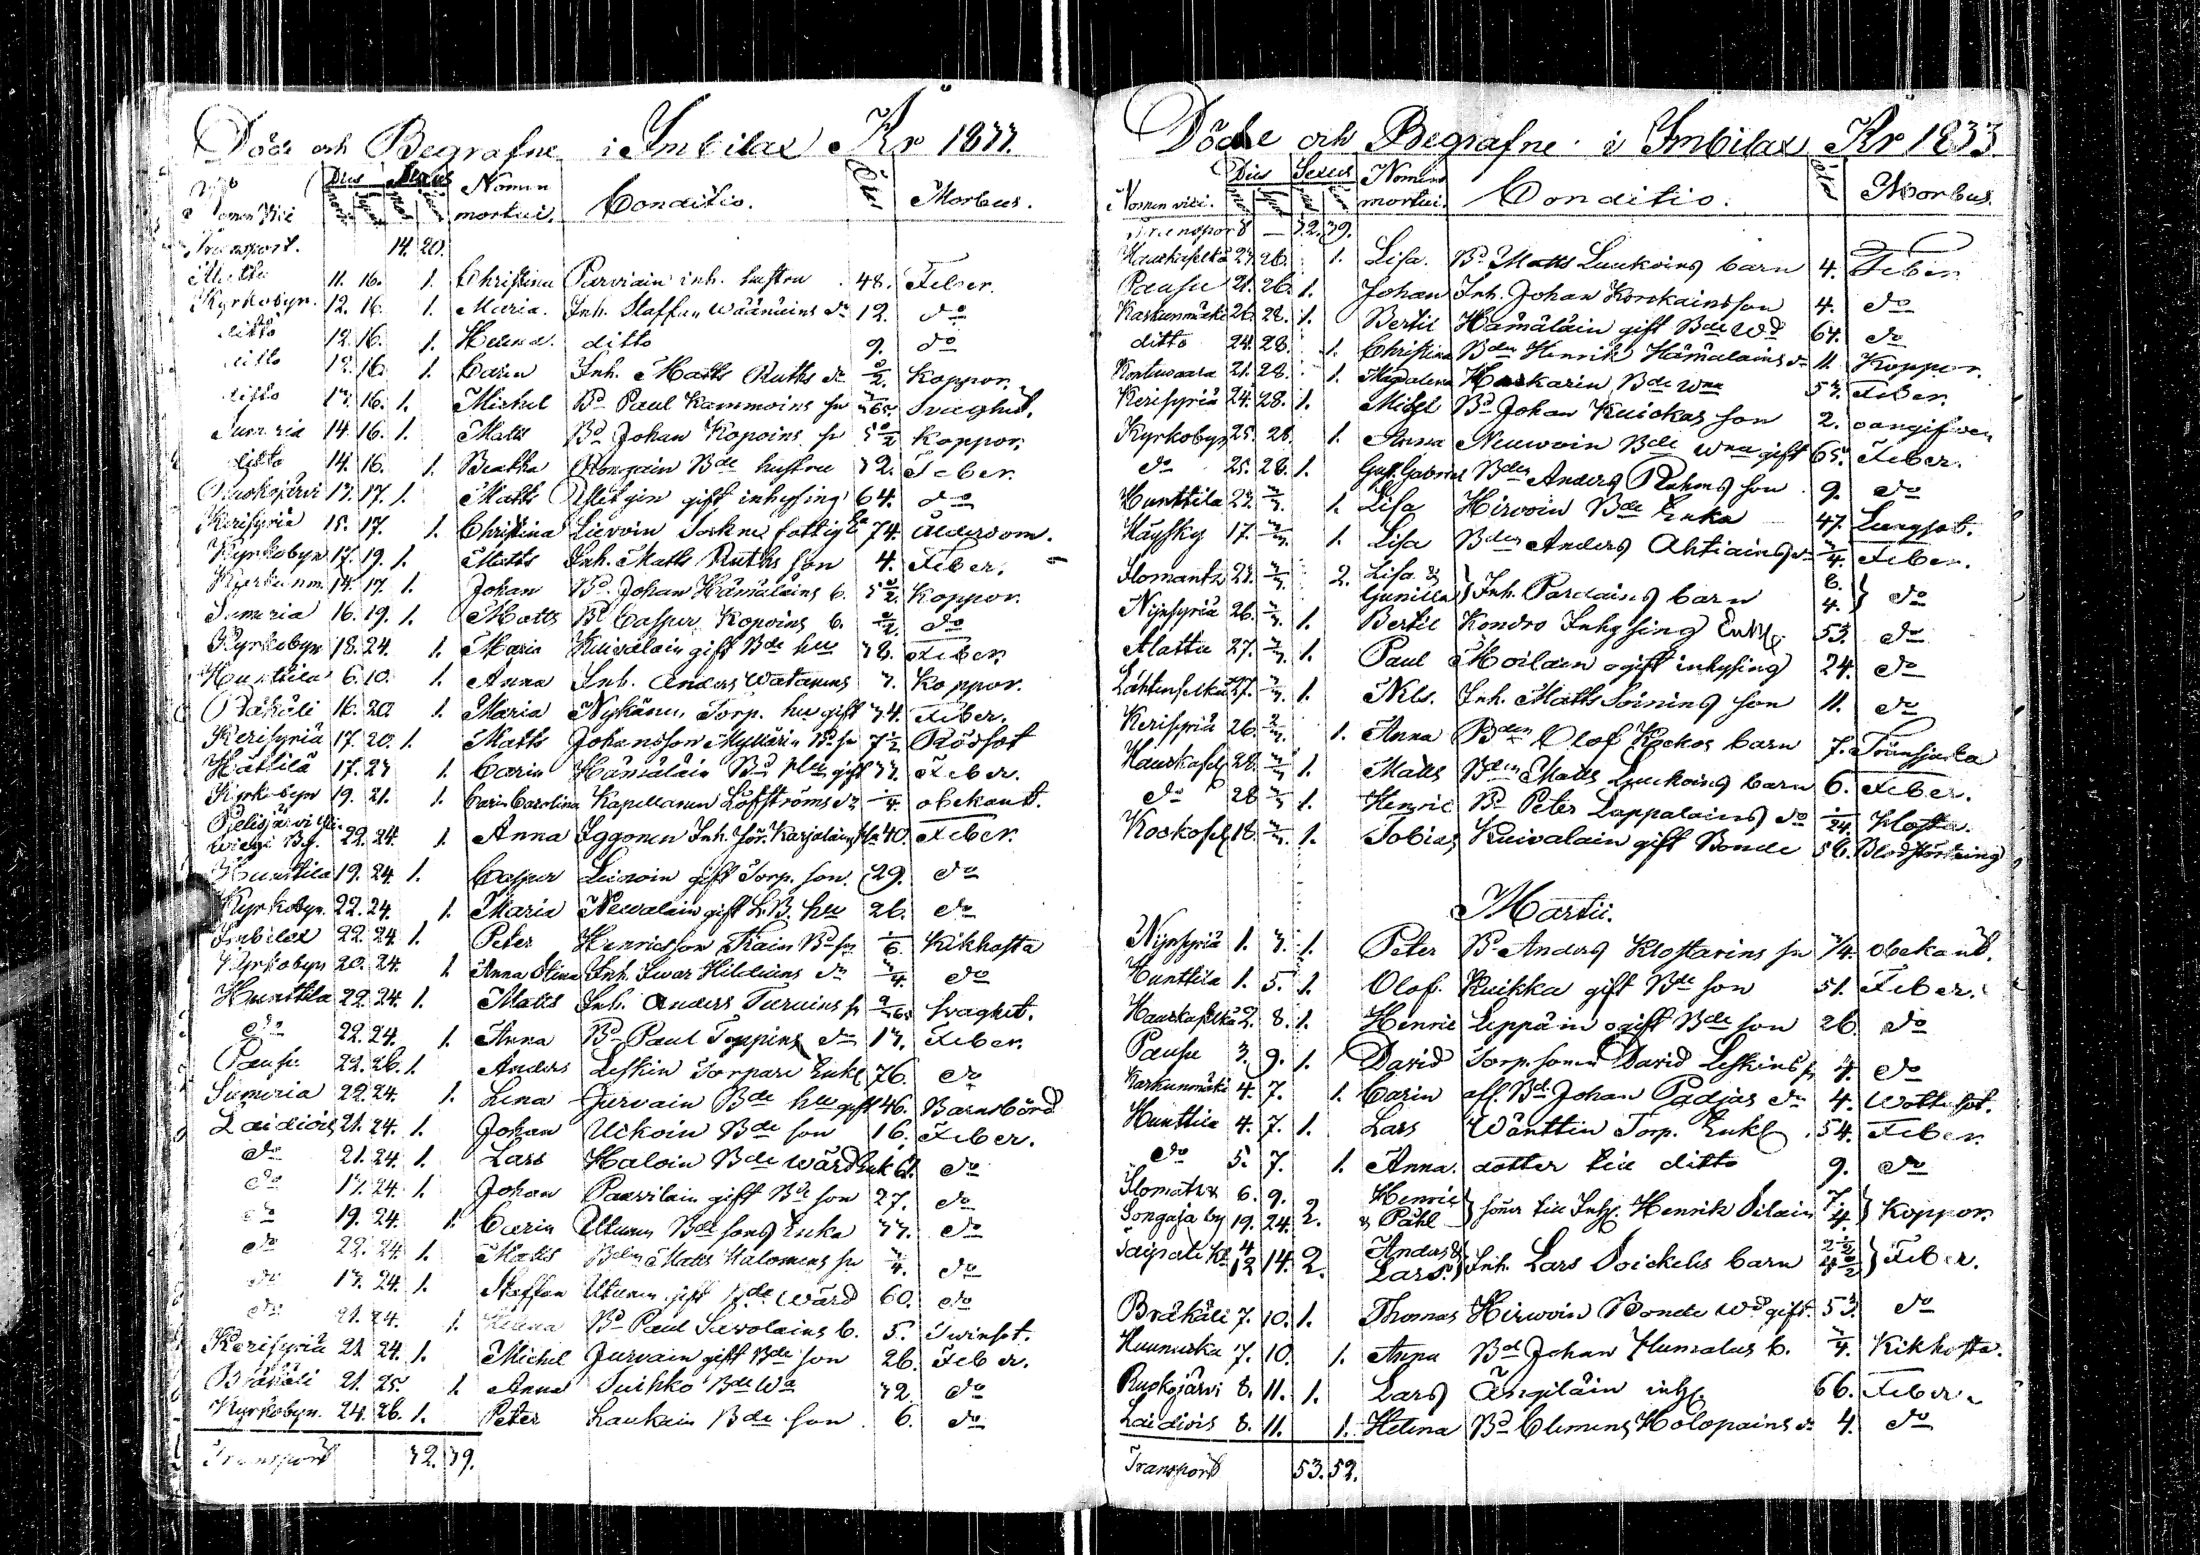 Döde och Begrafne i Imbilax År 1833.
Dies Sexus Nomen
mortui. Conditio. Morbus.
Transport. 14. 20.
11. 16. 1. Christina Parviain inh. hustru 48. Feber.
Kyrkobyn. 12. 16. 1. Maria. Inh. Staffan Wäänäins dr 12. do
ditto 12. 16. 1. Helena. ditto 9. do
ditto 12. 16. 1. Carin Inh. Matts Ruths dr Koppor.
ditto 13. 16. 1. Michel Bd Paul Kammoins sn Svaghet.
Sumeria 14. 16. 1. Matts Bd Johan Kopoins sn Koppor.
ditto 14. 16. 1. Beatha Rongain Bde hustru 32. Feber.
Ruokojärvi 13. 17. 1. Matts gift inhysing 64. do
Kerisyriä 15. 17. 1. Christina Lievoin Sockne fattig 74. Ålderdom.
Kyrkobyn 17. 19. 1. Matts Inh. Matts Ruths son 4. Feber.
14. 17. 1. Johan Bd. Johan Hämäläins b. Koppor.
Sumeria 16. 19. 1. Matts Bd Casper Kopoins b. do
Kyrkobyn 18. 24. 1. Maria Kuivalain gift Bde hu 38. Feber.
Hunttila 6. 10. 1. Anna Inh. Anders Watanens 3. Koppor.
Räkäli 16. 20. 1. Maria Nykänen Torp. hu gift 34. Feber.
Kerisyriä 17. 20. 1. Matts Johansson Myllärin Bd sn 7½ Rödsot
Hättilä 17. 23 1. Carin Hämäläin Bd Hu gift 33. Feber.
Kyrkobyn 19. 21. 1. Carin Carolina Kapellanen Löfströms dr obekant.
Pelisjärvi
22. 24. 1. Anna Iggonen Inh. Jör. Karjalains 40. Feber.
Hunttila 19. 24. 1. Casper Lievoin gift Torp. son. 29. do
Kyrkobyn. 22. 24. 1. Maria Nevalain gift hu 26. do
Imbilax 22. 24. 1. Peter Henricsson Train Bd sn Kikhosta
Kyrkobyn 20. 24. 1. Anna Stina Inh. Ivar Hildiens dr do
Hunttila 22. 24. 1. Matts Inh. Anders Turuins sn svaghet.
do 22. 24. 1. Anna Bd Paul Toppins dr 13. Feber.
Pausu 22. 26. 1 Anders Leskin Torpare Enkl 76. do
Sumeria 22. 24. 1. Lena Jurvain Bde hu gift 46. Barnsbörd
Laidiois 21. 24. 1. Johan Uckoin Bde son 16. Feber.
do 21. 24. 1. Lars Haloin Bde Wärd do
do 13. 24. 1. Johan Paavilain gift Bde son 27. do
do 19. 24. 1. Carin Utunen Bde sons Enka 33. do
do 22. 24. 1. Matts Bden Matts Halonens sn do
do 13. 24. 1. Staffan Utunen gift Bde Wärd 60. do
do 21. 24. 1. Helena Bd Paul Savolains b. 5. Tvinsot.
Kerisyriä 21. 24. 1. Michel Jurvain gift Bde son 26. Feber.
Räkäli 21. 25. 1. Anna Suihko Bde Wa 32. do
Kyrkobyn. 24. 26. 1. Peter Laukain Bde son. 6. do
Transport 32. 39.
Döde och Begrafne i Imbilax År 1833.
Dies Sexus Nomen
Nomen vici. mortui. Conditio. Morbus.
Transport — 32. 39.
Hauskaselkä 23. 26. 1. Lisa. Bd Matts Luukoins barn 4. Feber.
Pausu 21. 26. 1. Johan Inh. Johan Korckains son 4. do
Karkunmäki 26. 28. 1. Bertil Hämäläin gift Bde Wd 64. do
ditto 24. 28. 1. Christina Bden Henrik Hämäläins dr 11. Koppor.
Kontuvaara 21. 28. 1. Magdalena Haskarin Bde Wna 53. Feber.
Kerisyriä 24. 28. 1. Michel Bd Johan Kuickas son 2. oangifven
Kyrkobyn 25. 28. 1. Anna Neuwoin Bde Wna gift 65. Feber.
do 25. 28. 1. Gust. Gabriel Bden Anders Rahms son 9. do
Hunttila 23. 1. Lisa Hirvoin Bde Enka 47. Lungsot.
Häysky 17. 1. Lisa Bden Anders Ahtiains dr Feber.
Ilomants 23. 2. Lisa & 6.
Gunilla } Inh. Pardains barn 4. } do
Nijnsyriä 26. 1. Bertil Kondro Inhysing Enkl. 53. do
Alattu 27. 1. Paul Moilain ogift inhysing 24. do
Lähtenselkä 27. 1. Nils. Inh. Matts Soinins son 11. do
Kerisyriä 26. 1. Anna Bden Olof Kockos barn 7. Trånsjuka
Hauskaselk 28. 1. Matts Bden Matts Luukoins barn 6. Feber.
do 28 1. Henric Bd Peter Lappalains do Hosta.
Kockosel 18. 1. Tobias Kuivalain gift Bonde 56. Blodstörtning
Martii.
Nijnsyriä 1. 3. 1. Peter Bd Anders Klostarins sn 3/4. obekant.
Hunttila 1. 5. 1. Olof. Kuikka gift Bde son 51. Feber.
Hauskaselkä 2. 8. 1. Henric Leppäin ogift Bde son 26. do
Pausu 3. 9. 1. David Torp. sonen David Leskins sn 4. do
Karkunmäki 4. 7. 1. Carin afl. Bd. Johan Padjas dr 4. Wattusot.
Hunttila 4. 7. 1. Lars Wänttin Torp. Enkl 54. Feber.
do 5. 7. 1. Anna. dotter till ditto 9. do
Ilomants 6. 9. Henric 7.
Songaja by 19. 24. 2. & Påhl } söner till Inh. Henrik Silain 4. } Koppor.
4 Anders &
12 14. 2. Lars. } Inh. Lars Soickelis barn } Feber.
Bräkäli 7. 10. 1. Thomas Hirvoin Bonde Wd gift. 53. do
Huunuska 7. 10. 1. Anna Bd Johan Humalas b. Kikhosta.
Ruokojärvi 8. 11. 1. Lars Ängiläin inh. 66. Feber.
Laidiois 8. 11. 1. Helena Bd Clemens Holopains dr 4. do
Transport 53. 52.